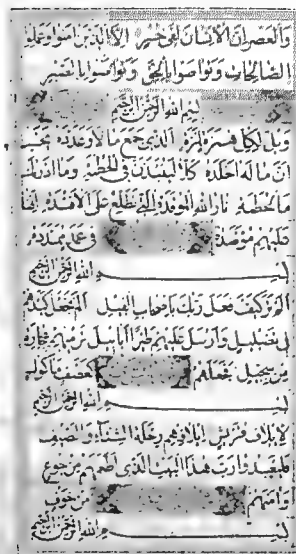 والعصر ان الانسان لفى خسر الا الذين امنوا وعملوا
الصالحات وتواصوا بالحق وتواصوا بالصبر
بسم الله الرحمن الرحيم
ويل لكل همزة لمزة الذى جمع مالا وعدده يحسب
ان ماله اخلده كلا لينبذن فى الحطمة وما ادريك
ما الحطمة نار الله الموقدة التى تطلع على الافئدة انها
عليهم موصدة فى عمد ممددة
بسم الله الرحمن الرحيم
الم تر كيف فعل ربك باصحاب الفيل الم يجعل كيدهم
فى تضليل وارسل عليهم طيرا ابابيل ترميهم بحجارة
من سجيل فجعلهم كعصف ماكول
بسم الله الرحمن الرحيم
لايلاف قريش ايلافهم رحلة الشتاء والصيف
فليعبدوا رب هذا البيت الذى اطعمهم من جوع
وامنهم من خوف
بسم الله الرحمن الرحيم